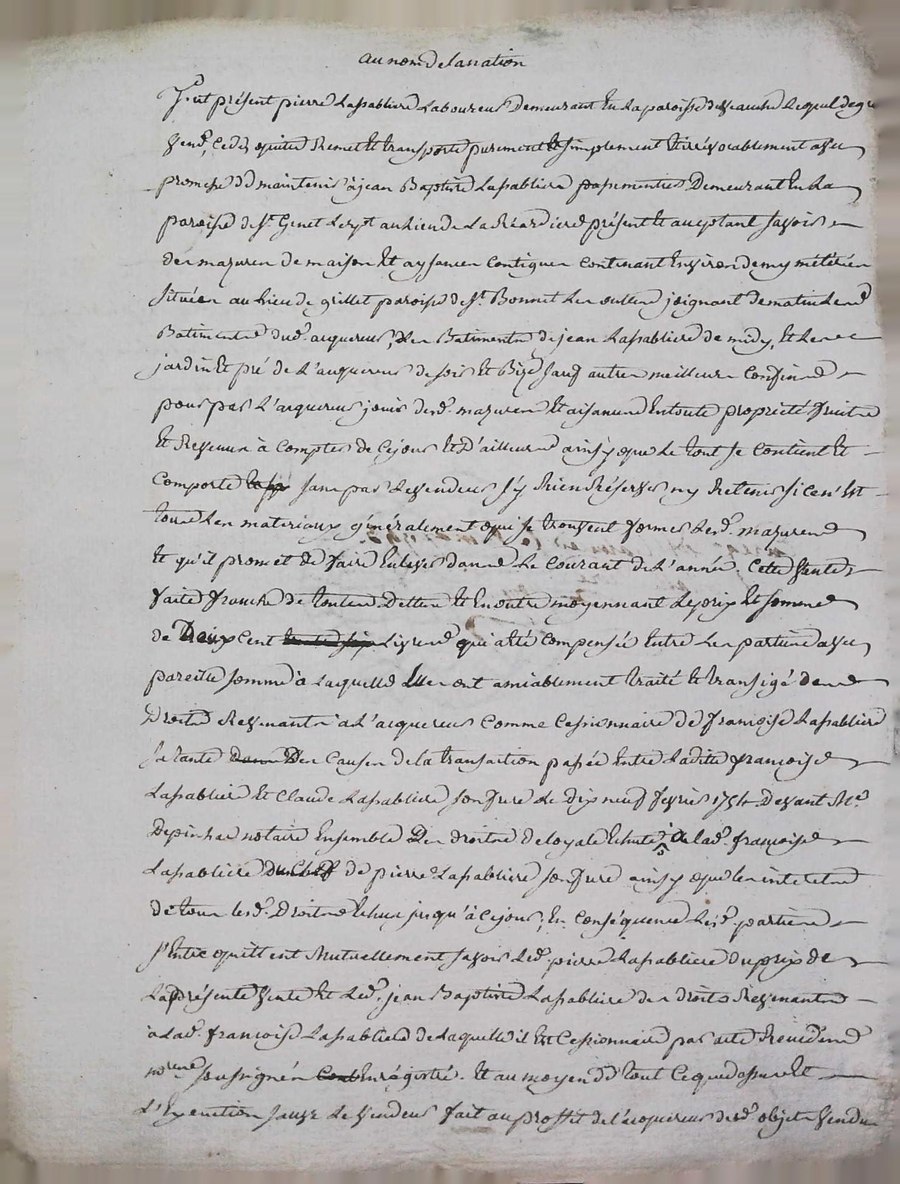 au nom de la nation
fut présent pierre Lasabliere Laboureur Demeurant En la paroisse de Lequel de
vend, Cede, quitte Remet Et transporte purement Et simplement Et irrévocablement avec
promesse de maintenir à jean Baptiste Lasabliere passementier Demeurant En La
paroisse de St. Genet Lerpt au Lieu de La présent Et acceptant savoir
des mazures de maison Et aysances Contigues Contenant Environ demy méterée
situées au Lieu de gillet paroisse de St. Bonnet Les oulles joignant de matin Les
Batiments dud. acquereur, Les Batiments de jean Lasabliere de midy, Et Les
jardin Et pré de L'acquereur de soir Et Bize sauf autres meilleurs Confins
pour par L'acquereur jouir desd. mazures Et aisances En toute propriété fruits
Et Revenus à Compter de Ce jour Et D'ailleurs ainsy que Le tout se Contient Et
Comporte sans par Le vendeur s'y Rien Réserver ny Retenir si Ce n'Est
tous Les materiaux généralement qui se trouvent former Lesd. mazures
Et qu'il promet de faire Enlever dans Le Courant de L'année, Cette vente
faite franche de toutes Dettes Et En outre moyennant Le prix Et somme
de Deux Cent Livres qui a été Compensée Entre Les parties avec
pareille somme à Laquelle Elles ont amiablement traité Et transigé des
Droits Revenants à L'acquereur Comme Cessionnaire de françoise Lasabliere
sa tante Des Causes de la transaction passée Entre Ladite françoise
Lasabliere Et Claude Lasabliere son frere Le dix neuf fevrier 1754 Devant Me.
Depinhac notaire Ensemble Des droits de loyale Echute à Lad. françoise
Lasabliere du Chef de pierre Lasabliere son frere ainsy que Les interets
de tous Lesd. Droits Echus jusqu'à Ce jour, En Conséquence Lesd. parties
s'Entre quittent Mutuellement savoir Led. pierre Lasabliere du prix de
La présente vente Et Led. jean Baptiste Lasabliere des droits Revenants
à Lad. françoise Lasabliere de Laquelle il Est Cessionnaire par acte Reçu des
nres soussignés Enrégistré. Et au moyen de tout Ce que dessus Et
L'Execution sauve Le vendeur fait au proffit de l'acquereur desd. objets vendus